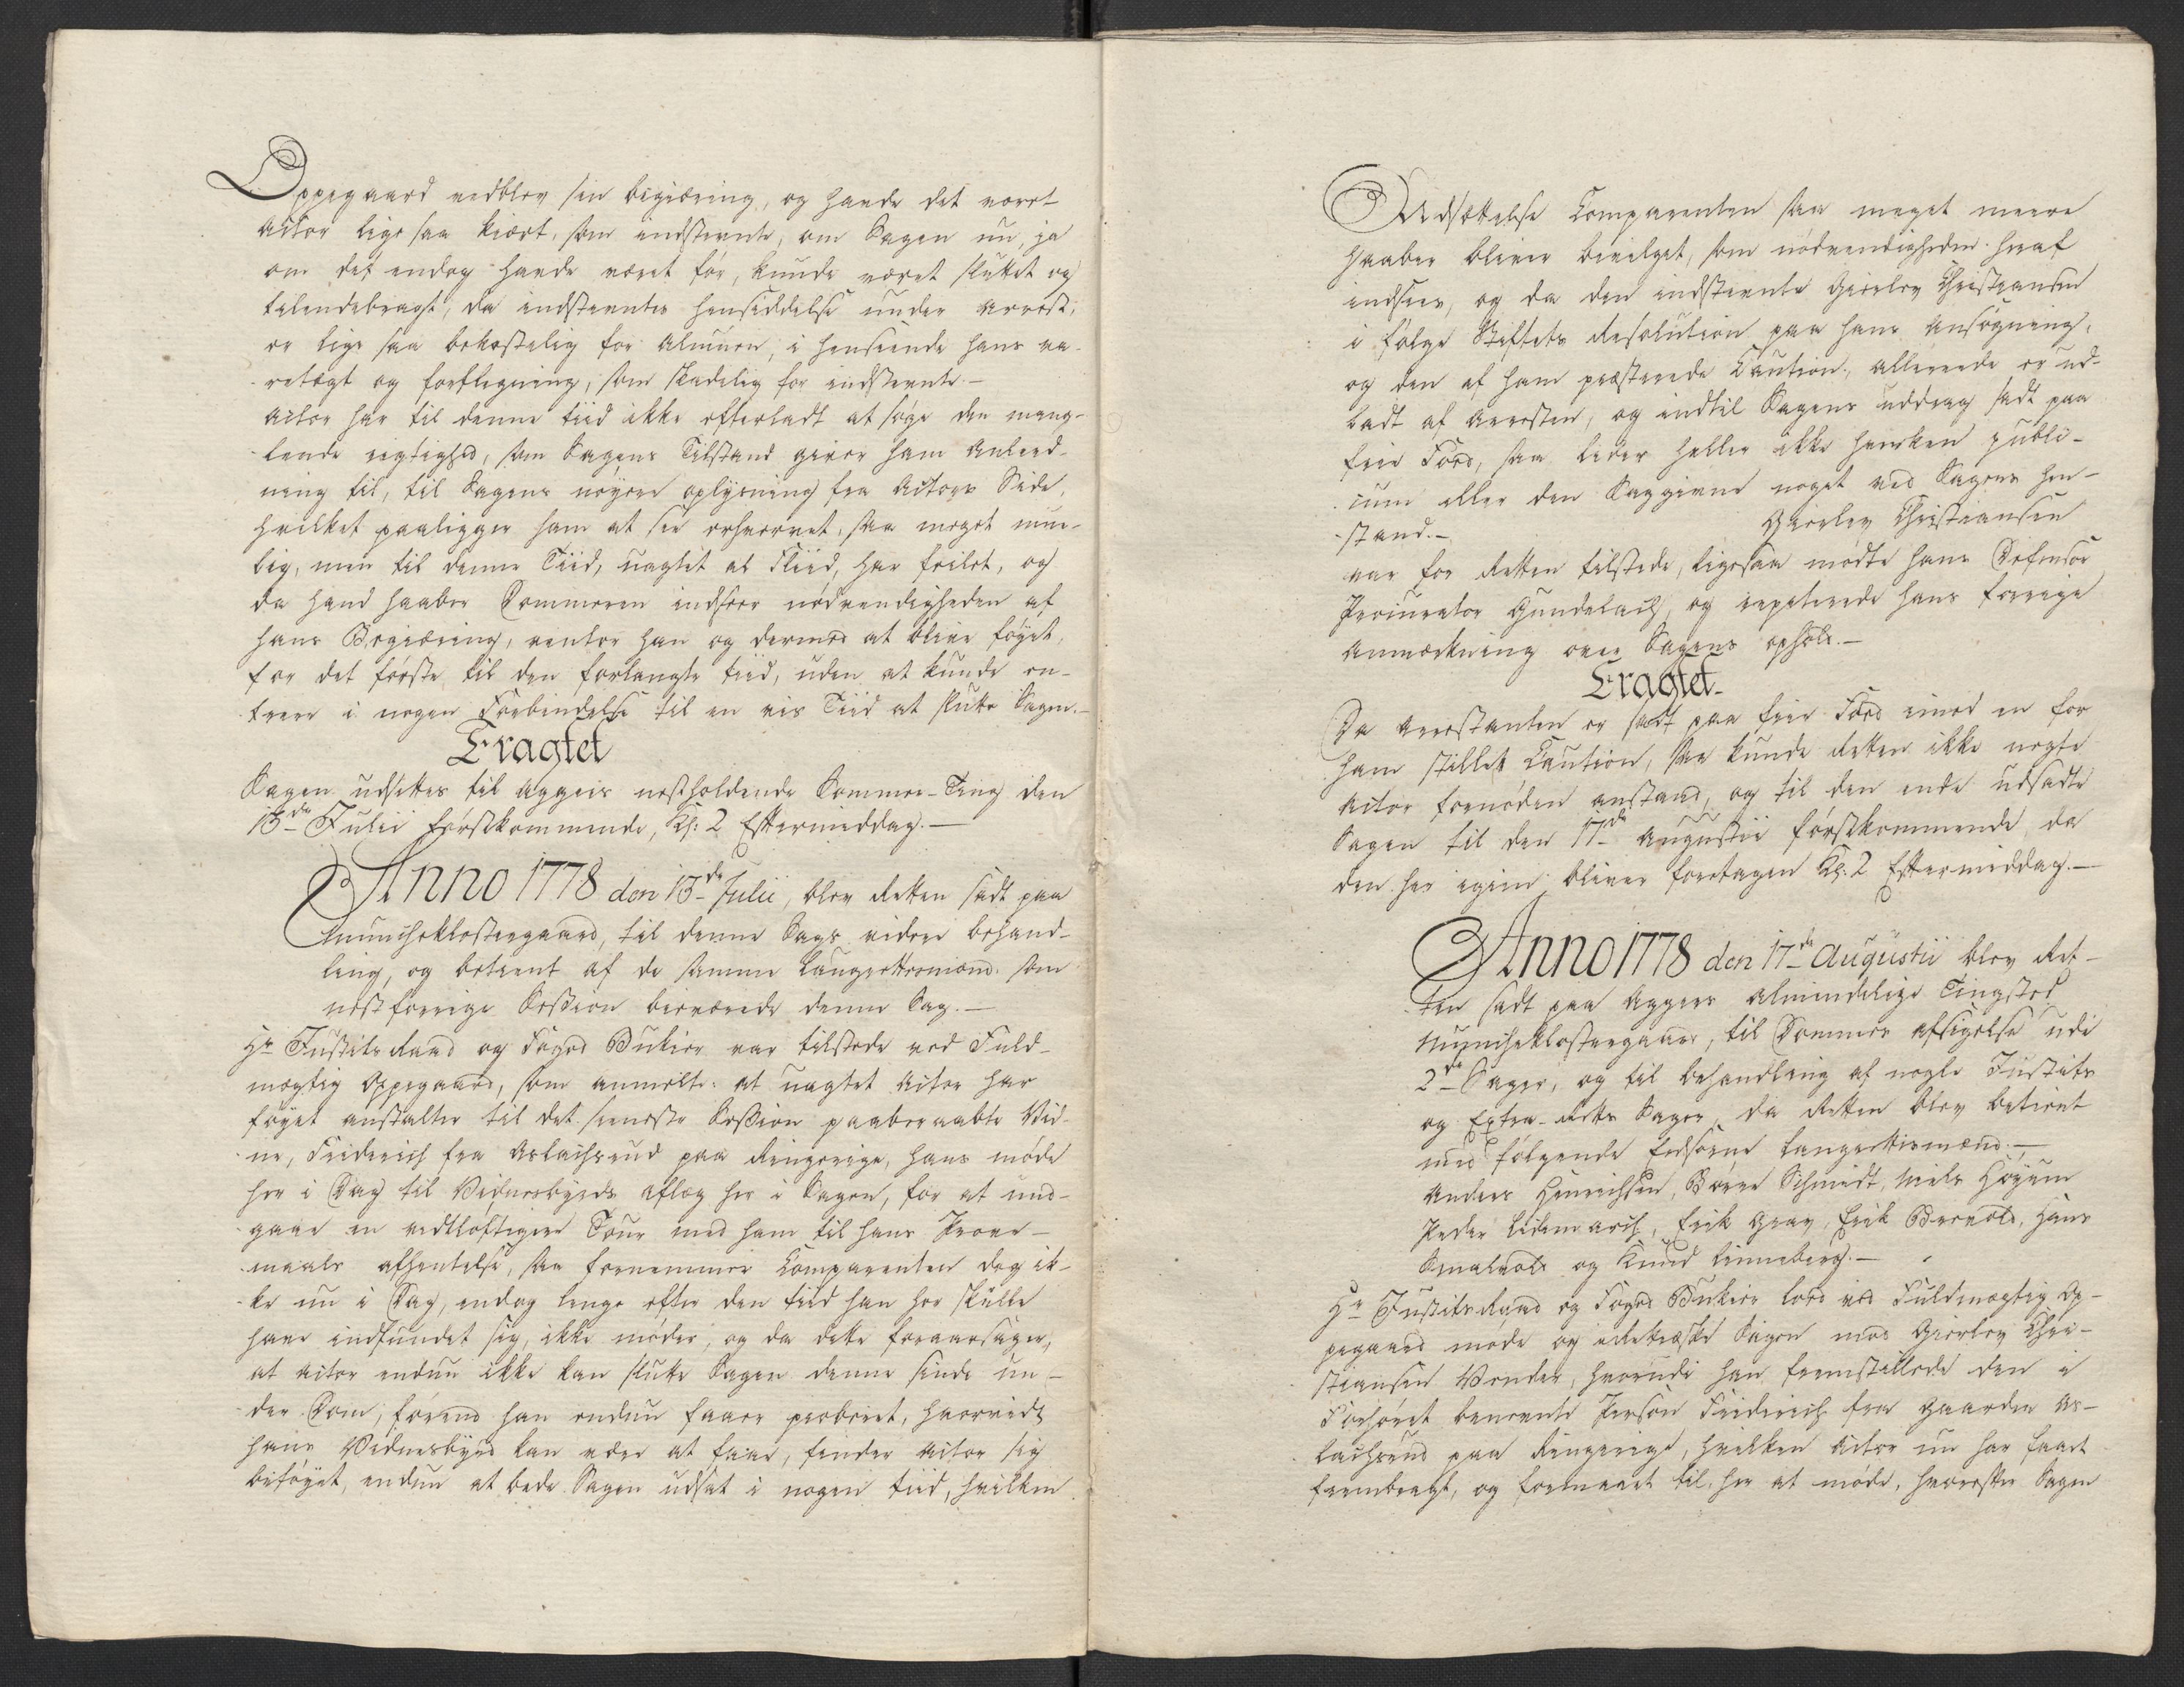 Oppegaard vedblev sin begiæring, og havde det været
Actor lige saa kiært, som indstevnte, om Sagen nu, ja
om det endog havde været før, kunde været sluttet og
tilendebragt, da indstevntes hensiddelse under Arrest,
er lige saa bekostelig for Almuen, i henseende hans va-
retægt og forflegning, som skadelig for indstevnte.—
Actor har til denne tiid ikke efterladt at søge den mang-
lende rigtighed, som Sagens Tilstand giver ham Anleed-
ning til, til Sagens nøyere oplysning fra Actors Side,
hvilket paaligger ham at see erhvervet, saa meget mue-
lig, men til denne Tiid, uagtet al Fliid, har feilet, og
da hand haaber Dommeren indseer nødvendigheden af
hans Begiæring, venter han og dermed at blive føyet,
for det første til den forlangte tiid, uden at kunde en-
trere i nogen Forbindelse til en vis Tiid at slutte Sagen.—
Eragtet
Sagen udsettes til Aggers nestholdende Sommer-Ting den
13de Julii førstkommende, Kl: 2 Eftermiddag.—
Anno 1778 den 13de Julii, blev Retten sadt paa
Munckeklostergaard, til denne Sags videre behand-
ling, og betient af de samme Laugrettesmænd som
nestforrige Session biværede denne Sag.—
Hr Justits Raad og Foged Bukier var tilstede ved Fuld-
mægtig Oppegaard, som anmelte: at uagtet Actor har
føyet anstalter til det seeneste Session paaberaabte Vid-
ne, Friderich fra Aslachsrud paa Ringerige, hans møde
her i Dag til Vidnesbyrds aflæg her i Sagen, for at und-
gaae en vidtløftigere Tour med ham til hans Prove-
maals afhentelse, saa fornemmer Comparenten dog ik-
ke nu i Dag, endog lenge efter den tiid han her skulle
have indfundet sig, ikke møder, og da dette foraarsager,
at Actor endnu ikke kan slutte Sagen denne sinde un-
der Dom, førend han endnu faaer proberet, hvorvidt
hans Vidnesbyrd kan være at faae, finder Actor sig
beføyet, endnu at bede Sagen udsat i nogen tiid, hvilken
Udsættelse Comparenten saa meget meere
haaber bliver bevilget, som nødvendigheden heraf
indsees, og da den indstevnte Gierlov Christiansen
i følge Stiftets Resolution paa hans Ansøgning,
og den af ham præsterede Caution, allereede er ud-
ladt af Arresten, og indtil Sagens uddrag sadt paa
frie Foed, saa leder heller ikke hverken publi-
cum eller den Saggivne noget ved Sagens hen-
stand.— Gierlov Christiansen
var for Retten tilstede, ligesaa mødte hans Defensor
Procurator Gundelach, og repeterede hans forrige
Anmerkning over Sagens ophold.—
Eragtet
Da Arrestanten er sadt paa frie Foed imod en for
ham stillet Caution, saa kunde Retten ikke negte
Actor fornøden anstand, og til den ende udsadte
Sagen til den 17de Augustii førstkommende, da
den her igien bliver foretagen Kl: 2 Eftermiddag.—
Anno 1778 den 17de Augustii blev Ret-
ten sadt paa Aggers almindelige Tingsted
Munckeklostergaard, til Dommes afsigelse udi
2de Sager, og til behandling af nogle Justits
og Extra-Rets Sager, da Retten blev betient
med følgende Eedsorne Laugrettesmænd.—
Anders Henrichsen, Børre Schmidt, Niels Høyum
Peder Ledemarch, Erik Grav, Erik Bervold, Hans
Smalvold og Knud Linneberg.—
Hr Justits Raad og Foged Bukier loed ved Fuldmægtig Op-
pegaard møde og iRettesatte Sagen mod Gierlov Chri-
stiansen Vonder, hvorudi han fremstillede den i
Forhøret benevnte Person Friderich fra gaarden As-
lachsrud paa Ringerige, hvilken Actor nu har faaet
frembragt, og formaaet til, her at møde, hvorefter Sagen